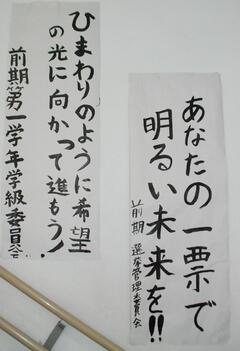 あなたの一票で
明るい未来を!!
前期 選挙管理委員会
ひまわりのように希望
の光に向かって進もう!
前期第一学年学級委員会